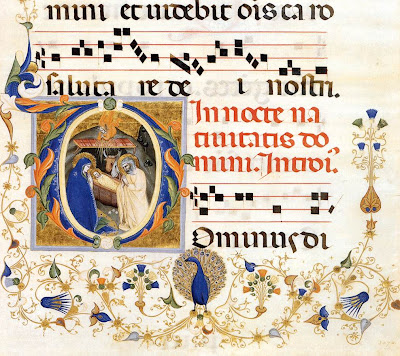 mini et uidebit ois caro
saluta re de i nostri.
In nocte na
tiuitatis do
mini. Introi⁹.
Ominus di